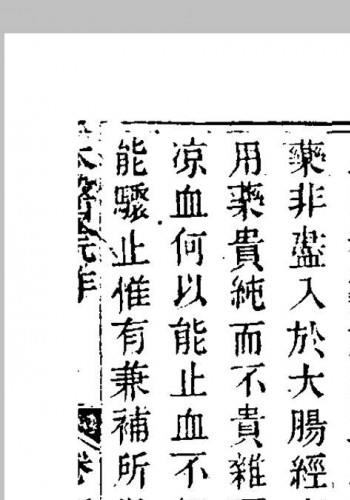 藥非盡入於大腸經
用藥貴純而不貴雜
凉血何以能止血不
能驟止惟有兼補所